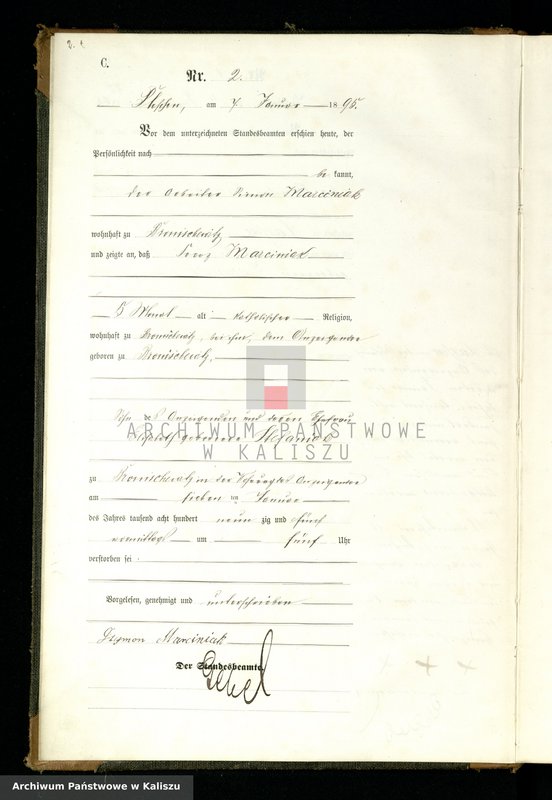 C.
Nr. 2.
Pleschen, am 7 Januar 1895.
Vor dem unterzeichneten Standesbeamten erschien heute, der
Persönlichkeit nach
be kannt,
der Arbeiter Simon Marciniak
wohnhaft zu Bronischewitz
und zeigte an, daß Marciniak
5 Monat alt katholischer Religion,
wohnhaft zu Bronischewitz, bei ihm, dem Anzeigenden
geboren zu Bronischewitz,
Sohn des Anzeigenden und dessen Ehefrau
geborene Stefaniak
zu Bronischewitz in der Behausung des Anzeigenden
am sieben ten Januar
des Jahres tausend acht hundert neun zig und fünf
vormittags um fünf Uhr
verstorben sei.
Vorgelesen, genehmigt und unterschrieben
Szymon Marciniak
Der Standesbeamte.
ARCHIWUM PAŃSTWOWE
W KALISZU
Archiwum Państwowe w Kaliszu